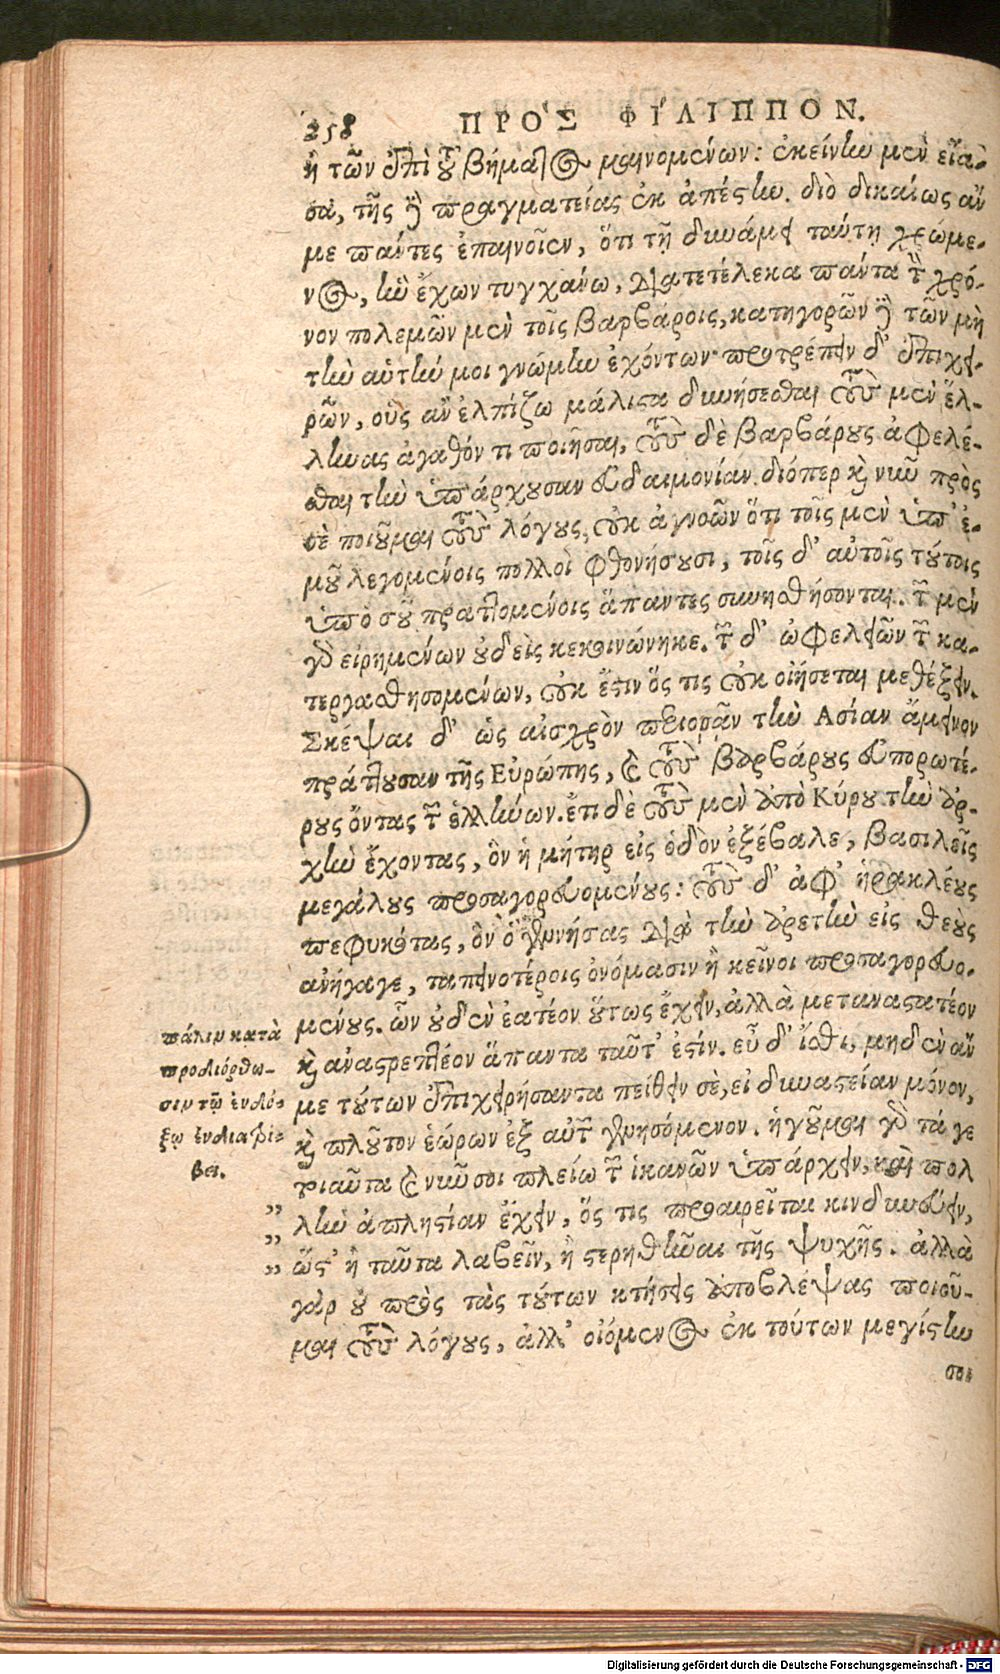 258 ΠΡΟ῾Σ ΦΙ΄ΛΙΠΠΟΝ.
ἢ τῶν ἐπὶ τοῦ βήματος μαινομένων: ἐκείνην μὲν εἴα-
σα, τῆς δὲ πραγματείας οὐκ ἀπέστην. διὸ δικαίως ἄν
με πάντες ἐπαινοῖεν, ὅτι τῇ δυνάμει ταύτῃ χρώμε-
νος, ἣν ἔχων τυγχάνω, διατετέλεκα πάντα τὸν χρό-
νον πολεμῶν μὲν τοῖς βαρβάροις, κατηγορῶν δὲ τῶν μὴ
τὴν αὐτήν μοι γνώμην ἐχόντων· προτρέπειν δ' ἐπιχει-
ρῶν, οὓς ἂν ἐλπίζω μάλιστα δυνήσεσθαι τοὺς μὲν ἕλ-
ληνας ἀγαθόν τι ποιῆσαι, τοὺς δὲ βαρβάρους ἀφελέ-
σθαι τὴν ὑπάρχουσαν εὐδαιμονίαν. διόπερ καὶ νῦν πρὸς
σὲ ποιοῦμαι τοὺς λόγους, οὐκ ἀγνοῶν ὅτι τοῖς μὲν ὑπ' ἐ-
μοῦ λεγομένοις πολλοὶ φθονήσουσι, τοῖς δ' αὐτοῖς τούτοις
ὑπὸ σοῦ πραττομένοις ἅπαντες συνησθήσονται. τῶν μὲν
γὰρ εἰρημένων οὐδεὶς κεκοινώνηκε. τῶν δ' ὠφελειῶν τῶν κα-
τεργασθησομένων, οὐκ ἔστιν ὅς τις οὐκ οἰήσεται μεθέξειν.
Σκέψαι δ' ὡς αἰσχρὸν περιορᾶν τὴν Ασίαν ἄμεινον
πράττουσαν τῆς Εὐρώπης, καὶ τοὺς βαρβάρους εὐπορωτέ-
ρους ὄντας τῶν ἑλλήνων. ἔτι δὲ τοὺς μὲν ἀπὸ Κύρου τὴν ἀρ-
χὴν ἔχοντας, ὃν ἡ μήτηρ εἰς ὁδὸν ἐξέβαλε, βασιλεῖς
μεγάλους προσαγορευομένους: τοὺς δ' ἀφ' ἡρακλέους
πεφυκότας, ὃν ὁ γεννήσας διὰ τὴν ἀρετὴν εἰς θεοὺς
ἀνήγαγε, ταπεινοτέροις ὀνόμασιν ἢ κεῖνοι προσαγορευο-
μένους. ὧν οὐδὲν ἐατέον οὕτως ἔχειν, ἀλλὰ μεταναστατέον
καὶ ἀναστρεπτέον ἅπαντα ταῦτ' ἐστίν. εὖ δ' ἴσθι, μηδὲν ἄν
με τούτων ἐπιχειρήσαντα πείθειν σὲ, εἰ δυναστείαν μόνον,
καὶ πλοῦτον ἑώρων ἐξ αὐτῶν γενησόμενον. ἡγοῦμαι γὰρ τά γε
τοιαῦτα καὶ νῦν σοι πλείω τῶν ἱκανῶν ὑπάρχειν, καὶ πολ
λὴν ἀπληστίαν ἔχειν, ὅς τις προαιρεῖται κινδυνεύειν,
ὥστ' ἢ ταῦτα λαβεῖν, ἢ στερηθῆναι τῆς ψυχῆς. ἀλλὰ
γὰρ οὐ πρὸς τὰς τούτων κτήσεις ἀποβλέψας ποιοῦ-
μαι τοὺς λόγους, ἀλλ' οἰόμενος ἐκ τούτων μεγίστην
σοι
πάλιν κατὰ
προδιόρθω-
σιν τῷ ἐνδό-
ξῳ ἐνδιατρί-
βει.
”
”
”
Digitalisierung gefördert durch die Deutsche Forschungsgemeinschaft - DFG